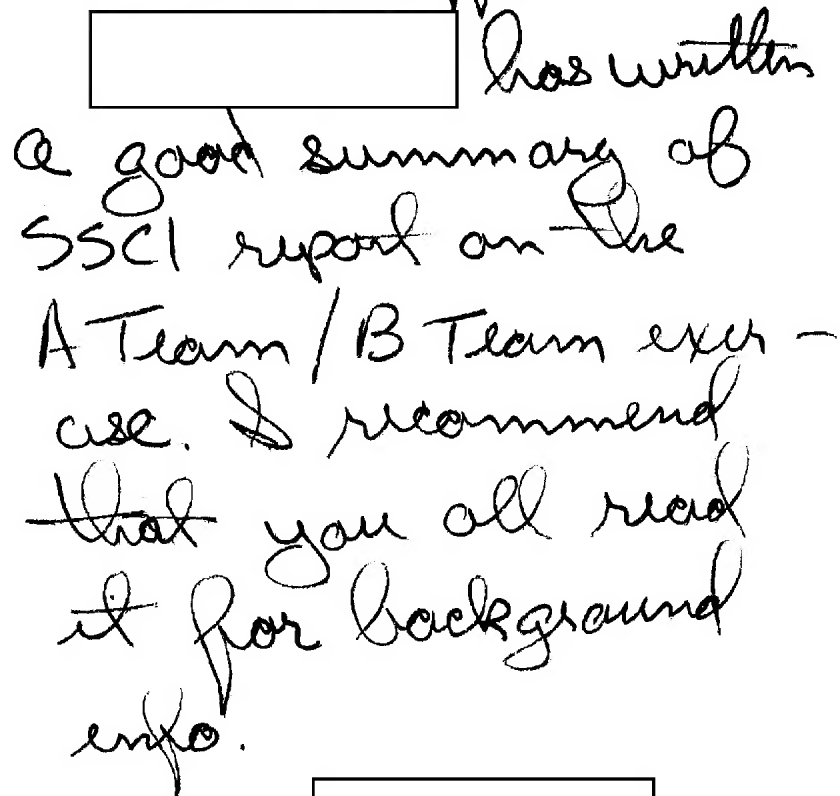 has written
a good summary of
SSCI report on the
A Team/B Team exer-
cise. I recommend
that you all read
it for background
info.